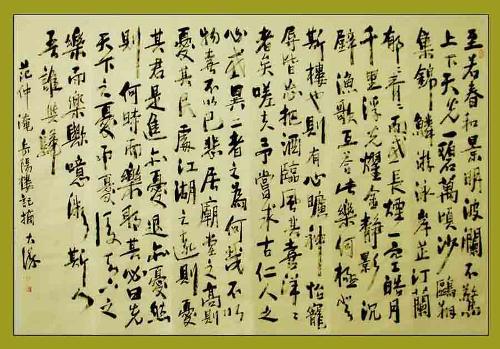 至若春和景明波瀾不驚
上下天光一碧萬頃沙鷗翔
集錦鱗游泳岸芷汀蘭
郁〻青〻而或長煙一空皓月
千里浮光耀金靜影沉
璧漁歌互答此樂何極登
斯樓也則有心曠神怡寵
辱皆忘把酒臨風其喜洋〻
者矣嗟夫予嘗求古仁人之
心或異二者之為何哉不以
物喜不以己悲居廟堂之高則
憂其民處江湖之遠則憂
其君是進亦憂退亦憂然
則何時而樂耶其必曰先
天下之憂而憂後天下之
樂而樂歟噫微斯人
吾誰與歸
范仲淹岳陽樓記摘